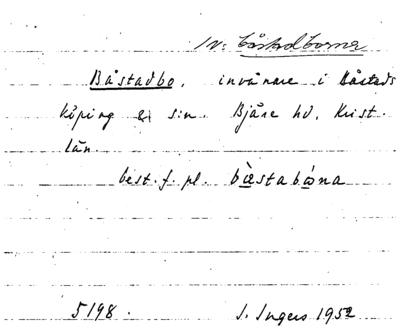 In: båstadborna
Båstadbo, invånare i Båstads
köping & sn. Bjäre hd, Krist.
län.
best. f. pl. bæstabǿna
5198. I. Ingers 1952